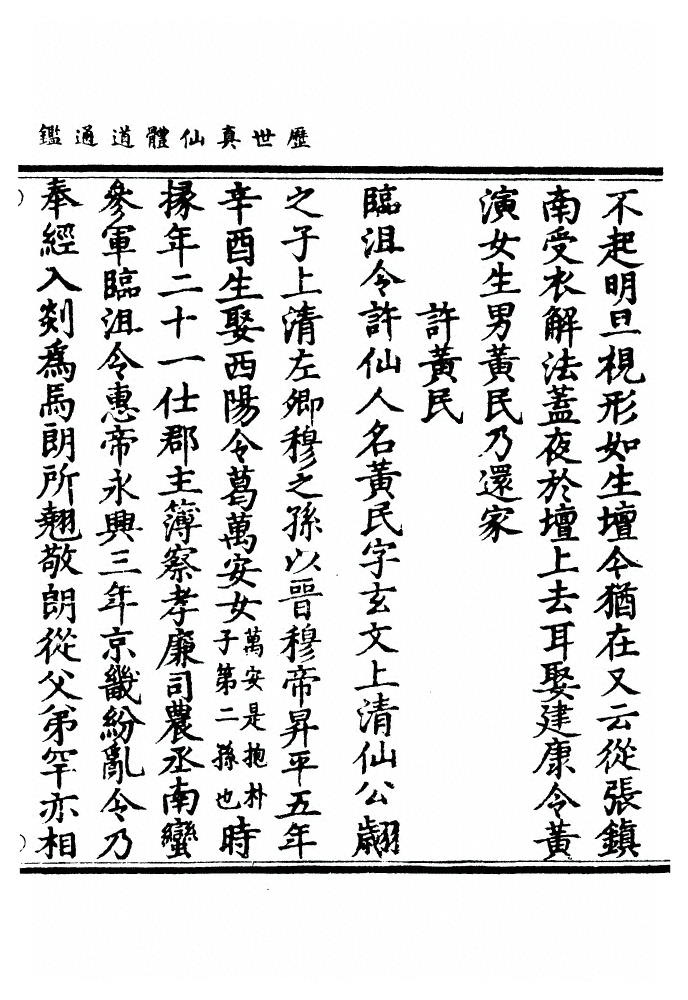 歷世真仙體道通鑑
不起明旦視形如生壇今猶在又云從張鎮
南受衣解法蓋夜於壇上去耳娶建康令黃
演女生男黃民乃還家
許黃民
臨沮令許仙人名黃民字玄文上清仙公翽
之子上清左卿穆之孫以晉穆帝昇平五年
辛酉生娶西陽令葛萬安女萬安是抱朴子第二孫也時
掾年二十一仕郡主簿察孝廉司農丞南蠻
參軍臨沮令惠帝永興三年京畿紛亂令乃
奉經入剡為馬朗所翹敬朗從父弟罕亦相